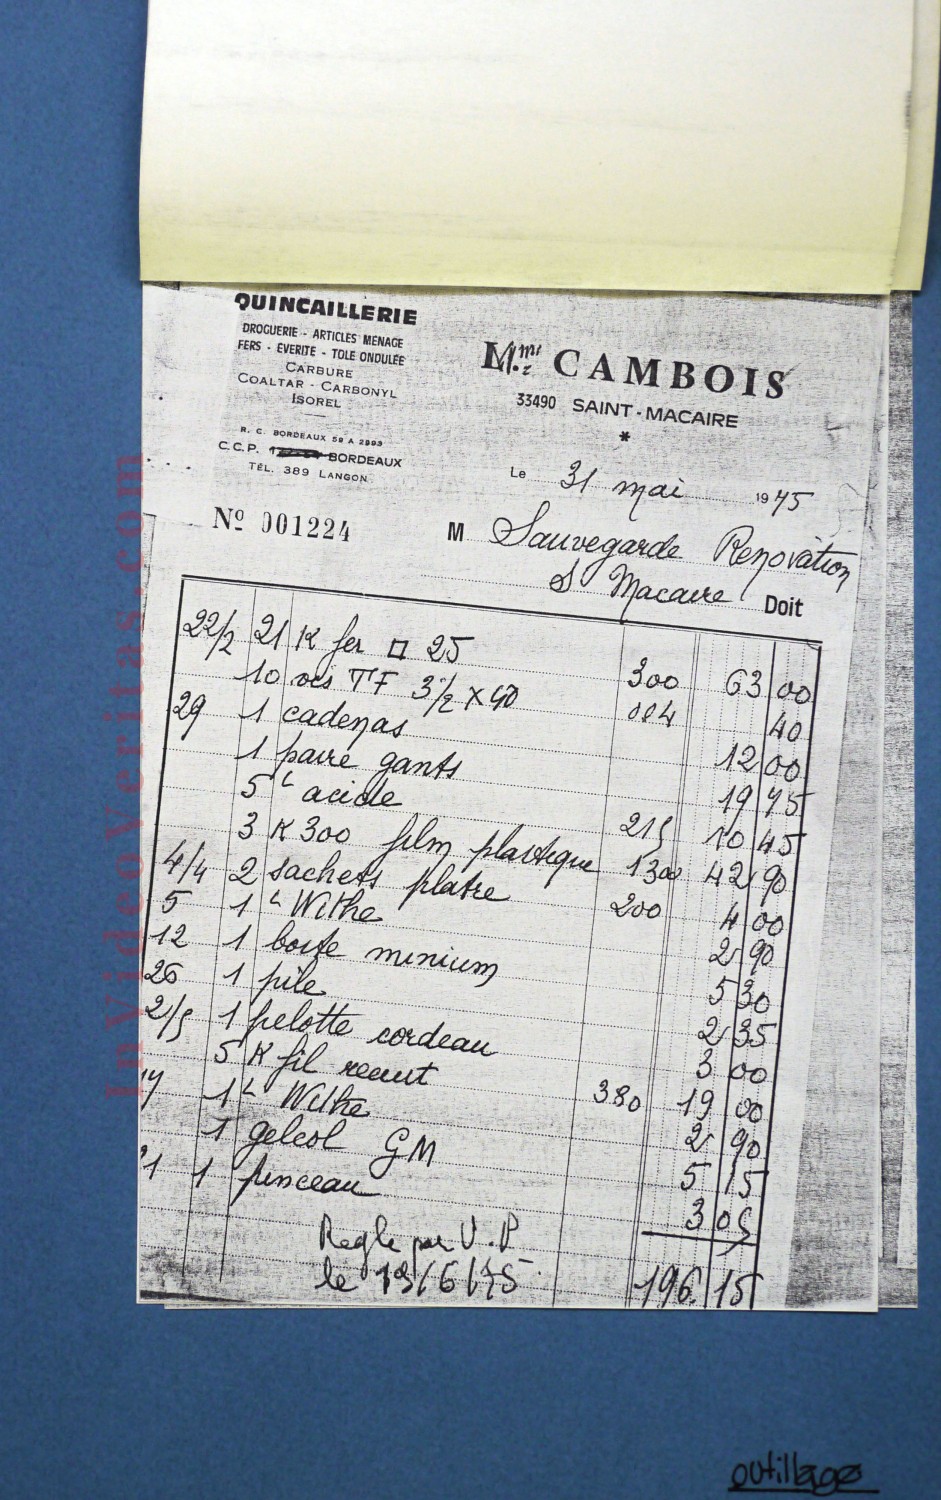 QUINCAILLERIE
DROGUERIE - ARTICLES MÉNAGE
FERS - EVERITE - TOLE ONDULÉE
CARBURE
COALTAR - CARBONYL
ISOREL
R. C. BORDEAUX 59 A 2993
C.C.P. BORDEAUX
TÉL. 389 LANGON
Mme CAMBOIS
33490 SAINT-MACAIRE
*
Le 31 mai 1975
Nº 001224
M Sauvegarde Renovation
S Macaire Doit
22/2 21 K fer □ 25 300 63 00
10 vis TF 3 1/2 X 40 004 40
29 1 cadenas 12 00
1 paire gants 19 75
5 L acide 215 10 45
3 K 300 film plastique 1300 42 90
4/4 2 sachets platre 200 4 00
5 1 L Withe 2 90
12 1 boite minium 5 30
26 1 pile 2 35
2/5 1 pelotte cordeau 3 00
5 K fil recuit 380 19 00
1 L Withe 2 90
1 gelcol GM 5 15
1 pinceau 3 05
Regle par V.P
le 13/6/75
196.15
outillage
InVideoVeritas.com